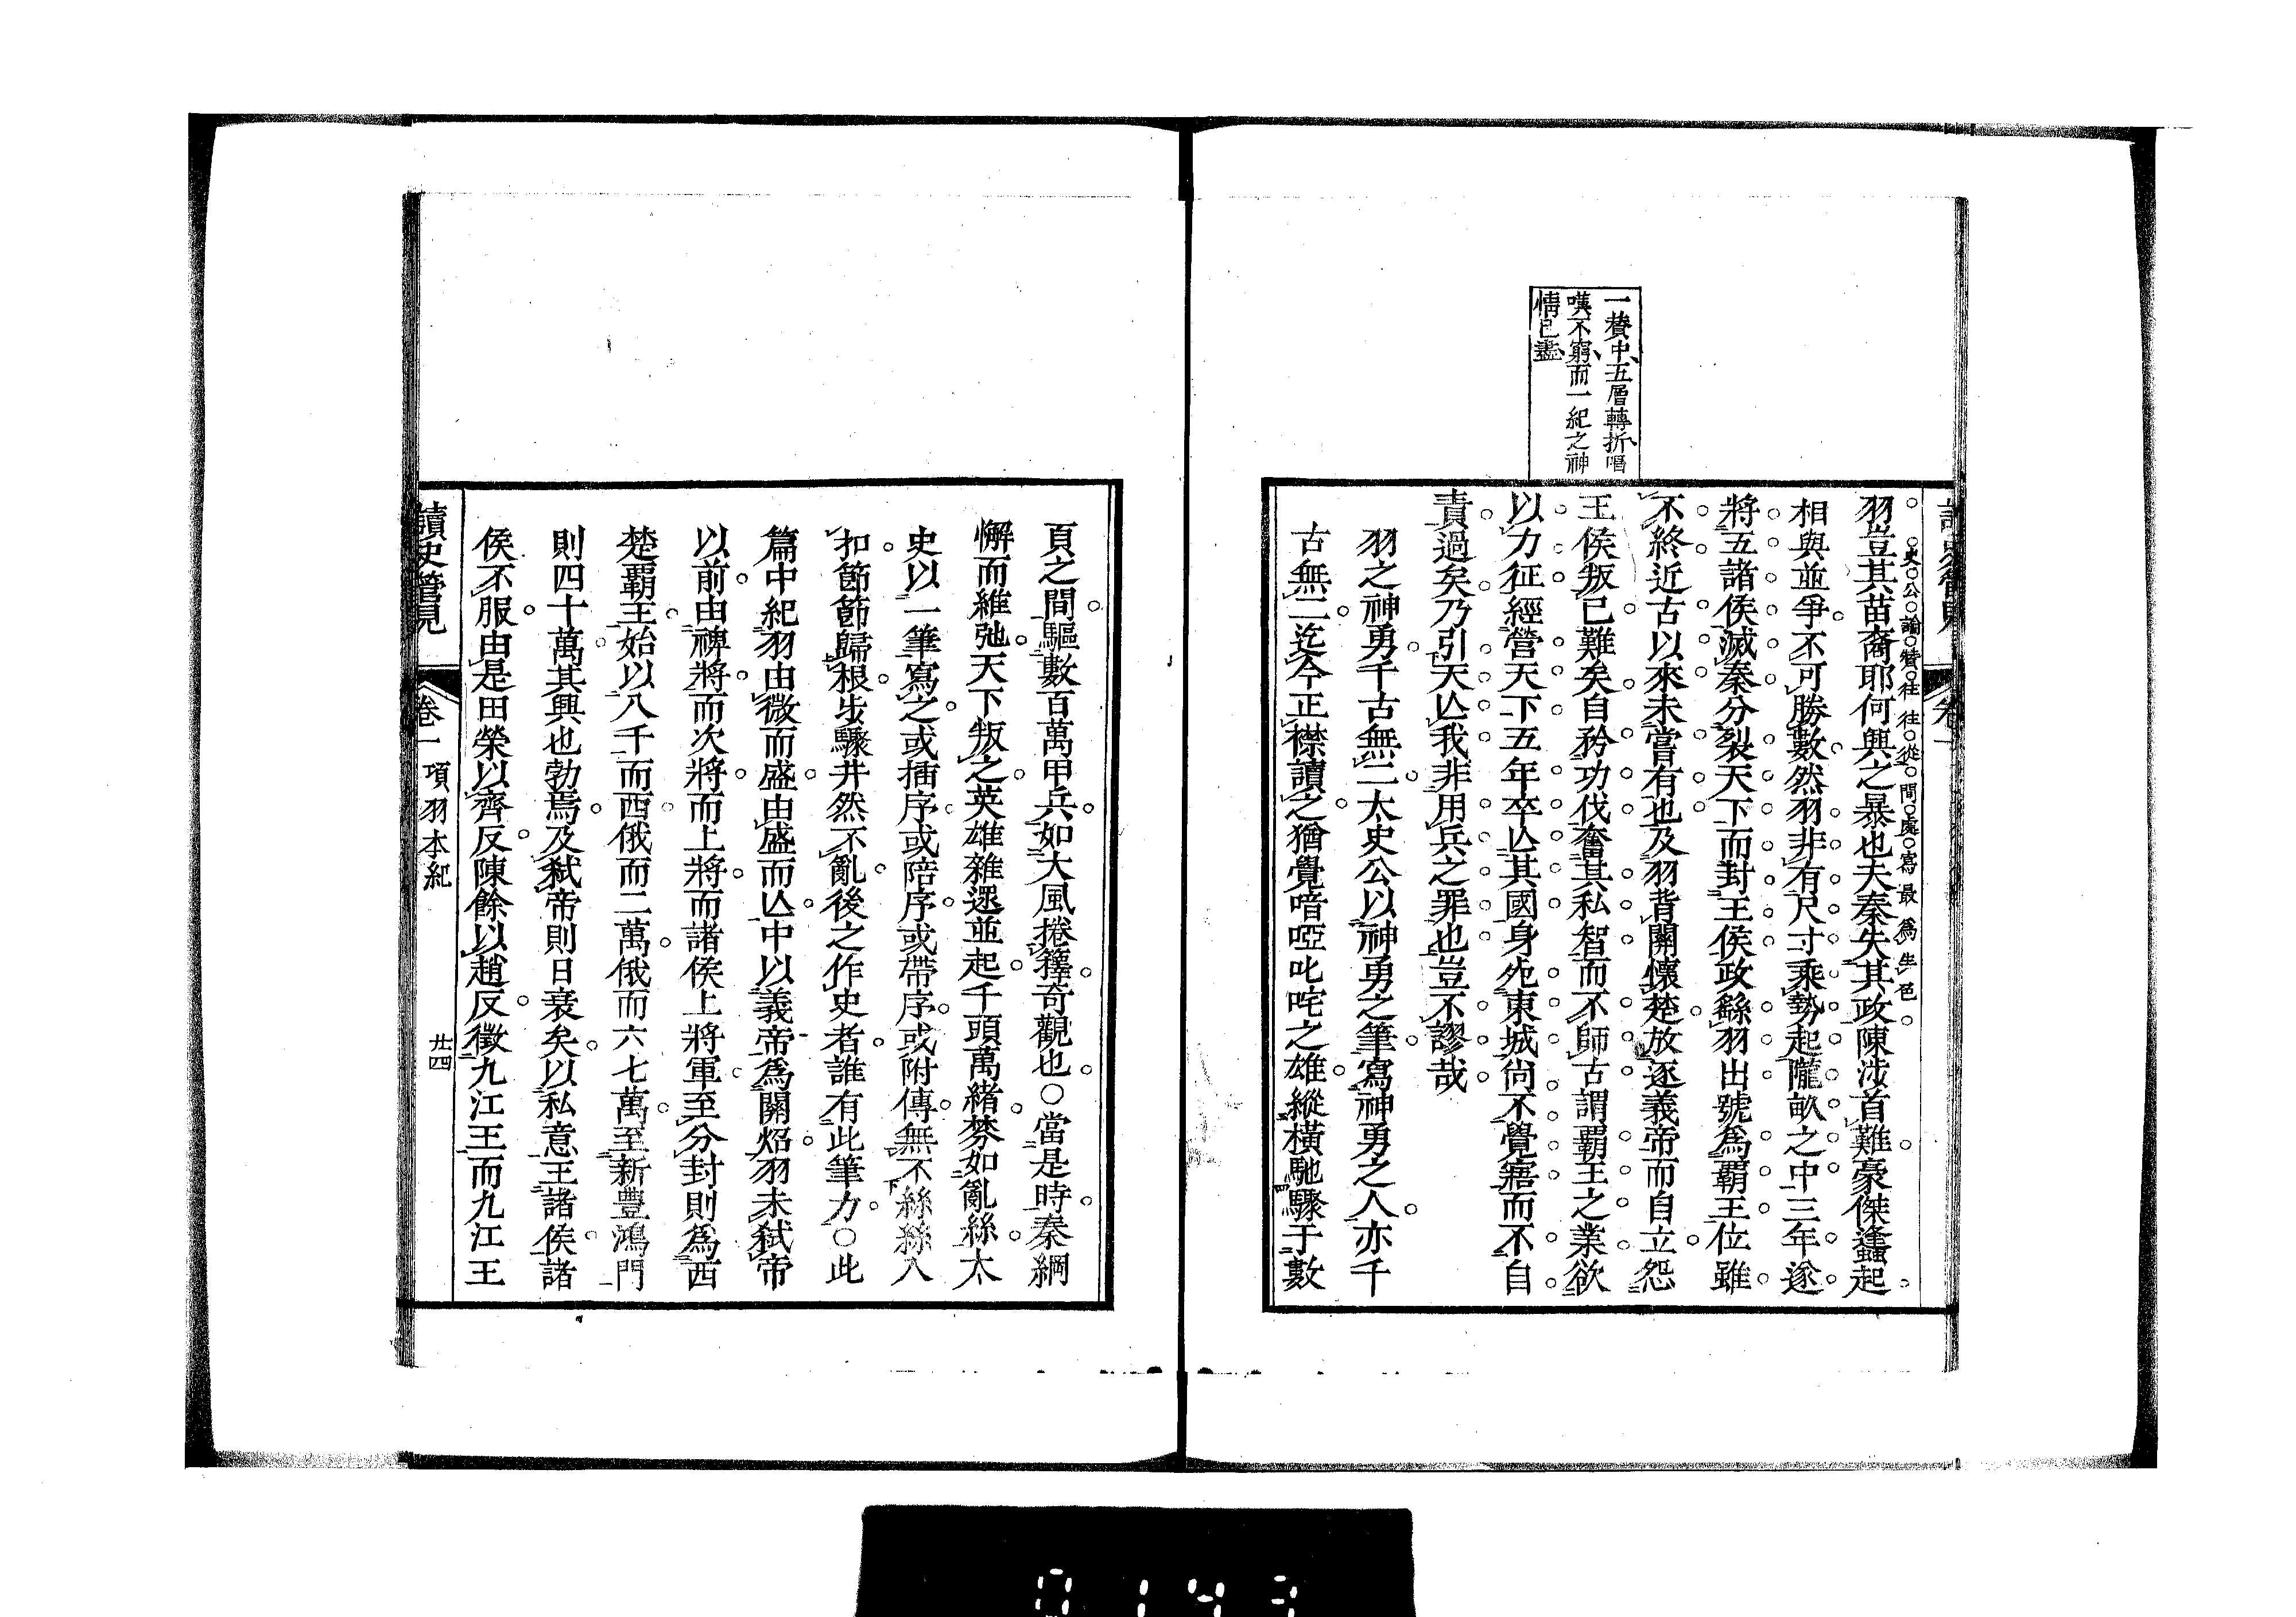 一贊中五層轉折唱
嘆不窮而一紀之神
情已盡
史公論贊往往從間處寫最爲生色
羽豈其苗裔耶何興之暴也夫秦失其政陳涉首難豪傑蠭起
相與並爭不可勝數然羽非有尺寸乘勢起隴畝之中三年遂
將五諸侯滅秦分裂天下而封王侯政繇羽出號爲霸王位雖
不終近古以來未嘗有也及羽背關懷楚放逐義帝而自立怨
王侯叛已難矣自矜功伐奮其私智而不師古謂霸王之業欲
以力征經營天下五年卒亾其國身死東城尚不覺寤而不自
責過矣乃引天亾我非用兵之罪也豈不謬哉
羽之神勇千古無二太史公以神勇之筆寫神勇之人亦千
古無二迄今正襟讀之猶覺喑啞叱咤之雄縱橫馳驟于數
頁之間驅數百萬甲兵如大風捲籜奇觀也○當是時秦綱
懈而維弛天下叛之英雄雜遝並起千頭萬緒棼如亂絲太
史以一筆寫之或插序或陪序或帶序或附傳無不絲絲入
扣節節歸根步驟井然不亂後之作史者誰有此筆力○此
篇中紀羽由微而盛由盛而亾中以義帝爲關炤羽未弑帝
以前由裨將而次將而上將而諸侯上將軍至分封則爲西
楚霸王始以八千而西俄而二萬俄而六七萬至新豐鴻門
則四十萬其興也勃焉及弑帝則日衰矣以私意王諸侯諸
侯不服由是田榮以齊反陳餘以趙反徵九江王而九江王
讀史管見
卷一
項羽本紀
廿四